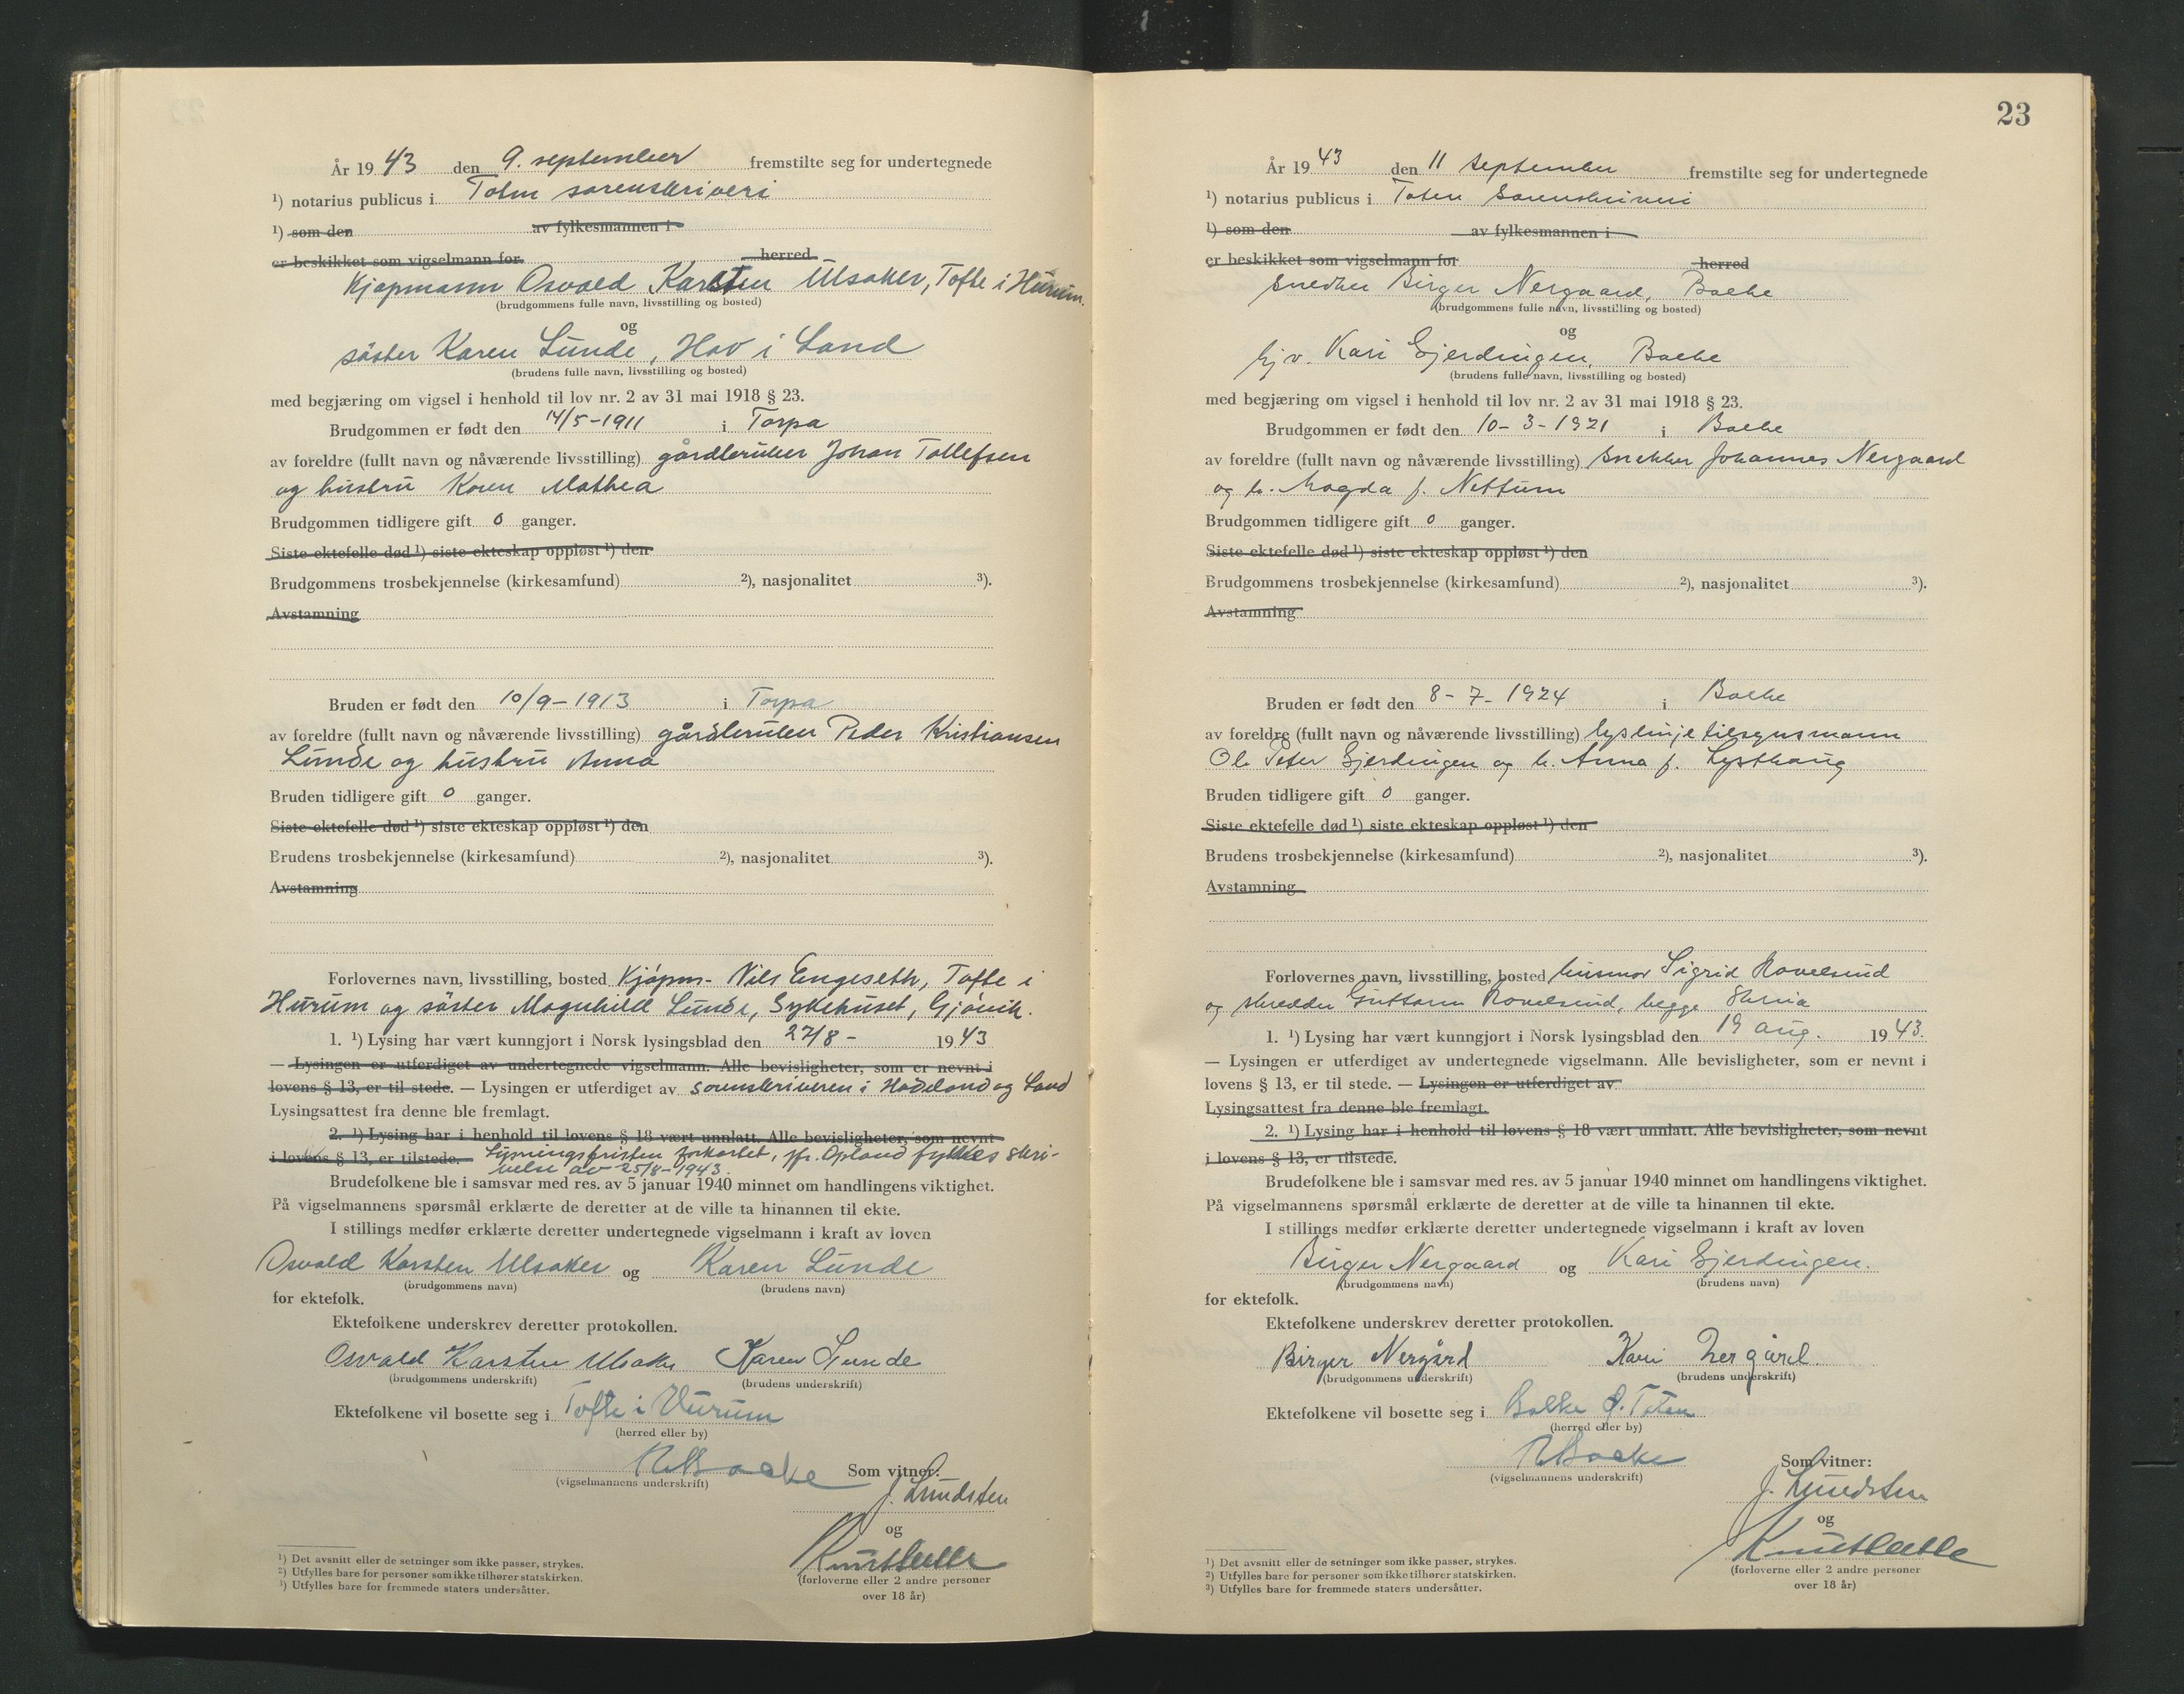 År 1943 den 9. september fremstilte seg for undertegnede
¹) notarius publicus i Toten sorenskriveri
¹) som den av fylkesmannen i
er beskikket som vigselmann for herred
Kjøpmann Osvald Karsten Ulsaker, Tofte i Hurum.
(brudgommens fulle navn, livsstilling og bosted)
og
søster Karen Lunde, Hov i Land
(brudens fulle navn, livsstilling og bosted)
med begjæring om vigsel i henhold til lov nr. 2 av 31 mai 1918 § 23.
Brudgommen er født den 14/5-1911 i Torpa
av foreldre (fullt navn og nåværende livsstilling) gårdbruker Johan Tollefsen
og hustru Karen Mathea
Brudgommen tidligere gift 0 ganger.
Siste ektefelle død ¹) siste ekteskap oppløst ¹) den
Brudgommens trosbekjennelse (kirkesamfund) ²), nasjonalitet ³).
Avstamning
Bruden er født den 10/9-1913 i Torpa
av foreldre (fullt navn og nåværende livsstilling) gårdbruker Peder Kristiansen
Lunde og hustru Anna
Bruden tidligere gift 0 ganger.
Siste ektefelle død ¹) siste ekteskap oppløst ¹) den
Brudens trosbekjennelse (kirkesamfund) ²), nasjonalitet ³).
Avstamning
Forlovernes navn, livsstilling, bosted Kjøpm. Nils Engeseth, Tofte i
Hurum og søster Magnhild Lunde, Sykehuset, Gjøvik.
1. ¹) Lysing har vært kunngjort i Norsk lysingsblad den 27/8 - 1943
— Lysingen er utferdiget av undertegnede vigselmann. Alle bevisligheter, som er nevnt i
lovens § 13, er til stede. — Lysingen er utferdiget av sorenskriveren i Hadeland og Land
Lysingsattest fra denne ble fremlagt.
2. ¹) Lysing har i henhold til lovens § 18 vært unnlatt. Alle bevisligheter, som nevnt
i lovens § 13, er tilstede. — Lysningsfristen forkortet, jfr. Opland fylkes skri-
velse av 25/8-1943.
Brudefolkene ble i samsvar med res. av 5 januar 1940 minnet om handlingens viktighet.
På vigselmannens spørsmål erklærte de deretter at de ville ta hinannen til ekte.
I stillings medfør erklærte deretter undertegnede vigselmann i kraft av loven
Osvald Karsten Ulsaker og Karen Lunde
(brudgommens navn) (brudens navn)
for ektefolk.
Ektefolkene underskrev deretter protokollen.
Osvald Karsten Ulsaker Karen Lunde
(brudgommens underskrift) (brudens underskrift)
Ektefolkene vil bosette seg i Tofte i Hurum
(herred eller by)
Som vitner:
(vigselmannens underskrift)
J. Lundsten
og
(forloverne eller 2 andre personer
over 18 år)
¹) Det avsnitt eller de setninger som ikke passer, strykes.
²) Utfylles bare for personer som ikke tilhører statskirken.
³) Utfylles bare for fremmede staters undersåtter.
23
År 1943 den 11 september fremstilte seg for undertegnede
¹) notarius publicus i Toten Sorenskriveri
¹) som den av fylkesmannen i
er beskikket som vigselmann for herred
Snekker Birger Nergaard, Bølke
(brudgommens fulle navn, livsstilling og bosted)
og
hjv. Kari Gjerdingen, Bølke
(brudens fulle navn, livsstilling og bosted)
med begjæring om vigsel i henhold til lov nr. 2 av 31 mai 1918 § 23.
Brudgommen er født den 10-3-1921 i Bølke
av foreldre (fullt navn og nåværende livsstilling) Snekker Johannes Nergaard
og h. Magda f. Nettum
Brudgommen tidligere gift 0 ganger.
Siste ektefelle død ¹) siste ekteskap oppløst ¹) den
Brudgommens trosbekjennelse (kirkesamfund) ²), nasjonalitet ³).
Avstamning
Bruden er født den 8-7-1924 i Bølke
av foreldre (fullt navn og nåværende livsstilling) lyslinje tilsynsmann
Ole Peter Gjerdingen og h. Anna f. Lysthaug
Bruden tidligere gift 0 ganger.
Siste ektefelle død ¹) siste ekteskap oppløst ¹) den
Brudens trosbekjennelse (kirkesamfund) ²), nasjonalitet ³).
Avstamning
Forlovernes navn, livsstilling, bosted husmor Sigrid Rovelsrud
og skredder Guttorm Rovelsrud, begge Skreia
1. ¹) Lysing har vært kunngjort i Norsk lysingsblad den 19 aug. 1943.
— Lysingen er utferdiget av undertegnede vigselmann. Alle bevisligheter, som er nevnt i
lovens § 13, er til stede. — Lysingen er utferdiget av
Lysingsattest fra denne ble fremlagt.
2. ¹) Lysing har i henhold til lovens § 18 vært unnlatt. Alle bevisligheter, som nevnt
i lovens § 13, er tilstede.
Brudefolkene ble i samsvar med res. av 5 januar 1940 minnet om handlingens viktighet.
På vigselmannens spørsmål erklærte de deretter at de ville ta hinannen til ekte.
I stillings medfør erklærte deretter undertegnede vigselmann i kraft av loven
Birger Nergaard og Kari Gjerdingen.
(brudgommens navn) (brudens navn)
for ektefolk.
Ektefolkene underskrev deretter protokollen.
Birger Nergård Kari Nergård.
(brudgommens underskrift) (brudens underskrift)
Ektefolkene vil bosette seg i Bølke Ø. Toten
(herred eller by)
Som vitner:
(vigselmannens underskrift)
J. Lundsten
og
(forloverne eller 2 andre personer
over 18 år)
¹) Det avsnitt eller de setninger som ikke passer, strykes.
²) Utfylles bare for personer som ikke tilhører statskirken.
³) Utfylles bare for fremmede staters undersåtter.